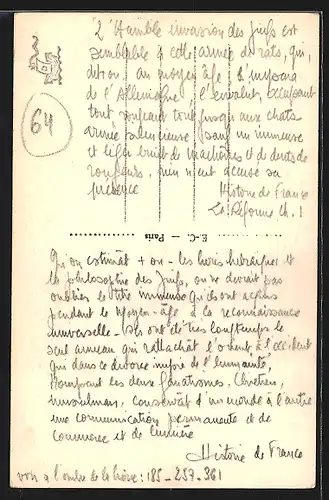 L'Humble invasion des Juifs est
semblable à cette armée de rats, qui,
dit-on, au moyen-âge s'empara
de l'Allemagne, l'envahit, occupant
tout, jusqu'aux chats
armée silencieuse, sauf un immense
et léger bruit de mâchoires et de dents de
rongeurs, rien n'eut accusé sa
présence
Histoire de France
La Réforme Ch. 1
64
E.-C. — Paris
Qu'on estimât + ou - les livres hébraïques et
la philosophie des Juifs, on ne devrait pas
oublier le titre immense qu'ils ont acquis
pendant le Moyen-âge à la reconnaissance
universelle - Ils ont été très longtemps le
seul anneau qui rattachât l'orient à l'occident
qui dans ce divorce impie de l'humanité,
trompant les deux fanatismes, Chrétien,
musulman, conservât d'un monde à l'autre
une communication permanente et de
commerce et de lumière
Histoire de France
voir 185 - 257 - 361